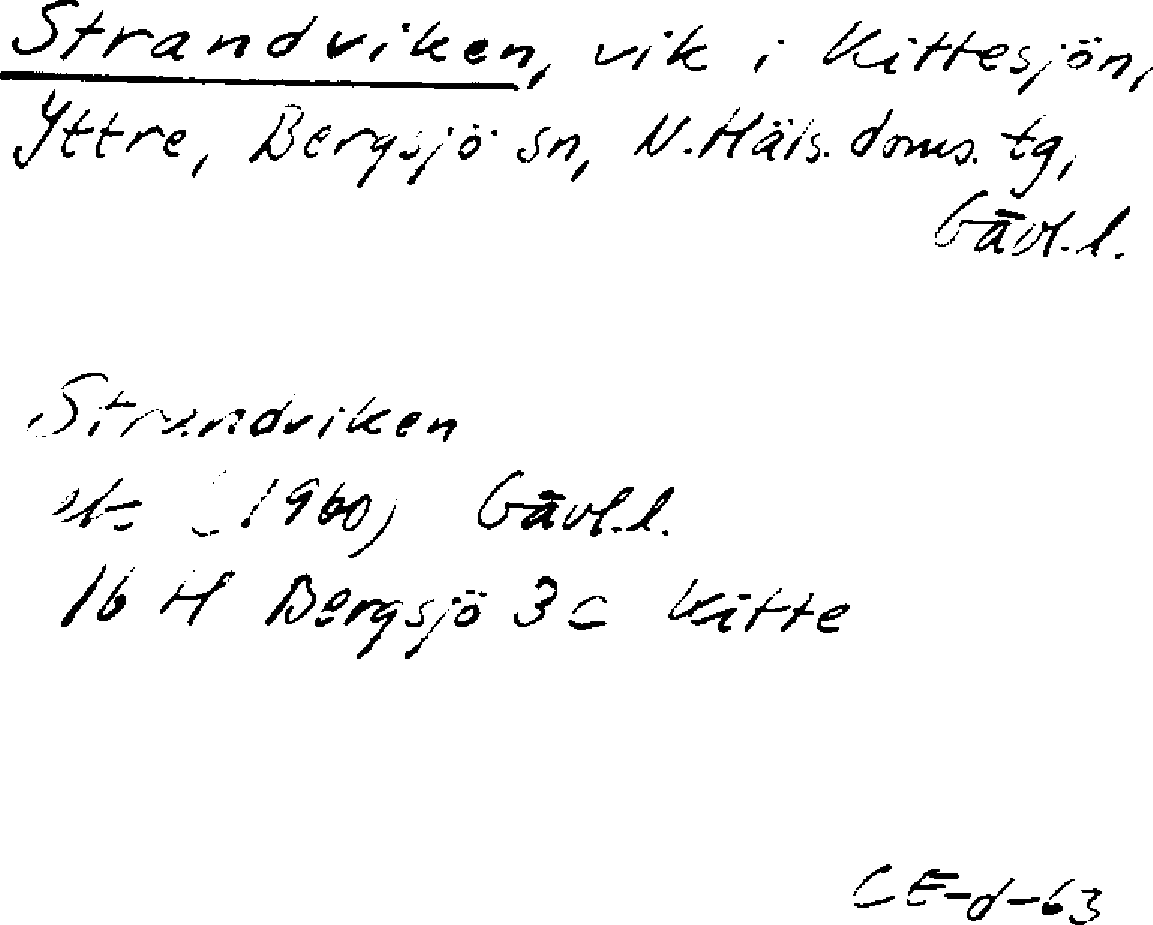 Strandviken, vik i Kittesjön,
Yttre, Bergsjö sn, N.Häls.doms.tg,
Gävl.l.
Strandviken
ek (1960) Gävl.l.
16 H Bergsjö 3c Kitte
CE-d-63